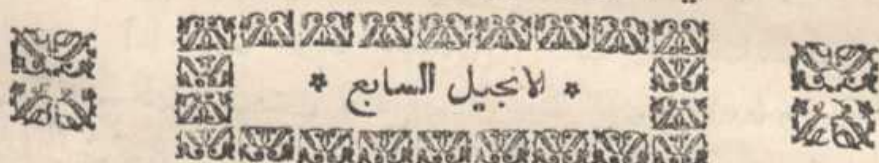 * الانجيل السابع *